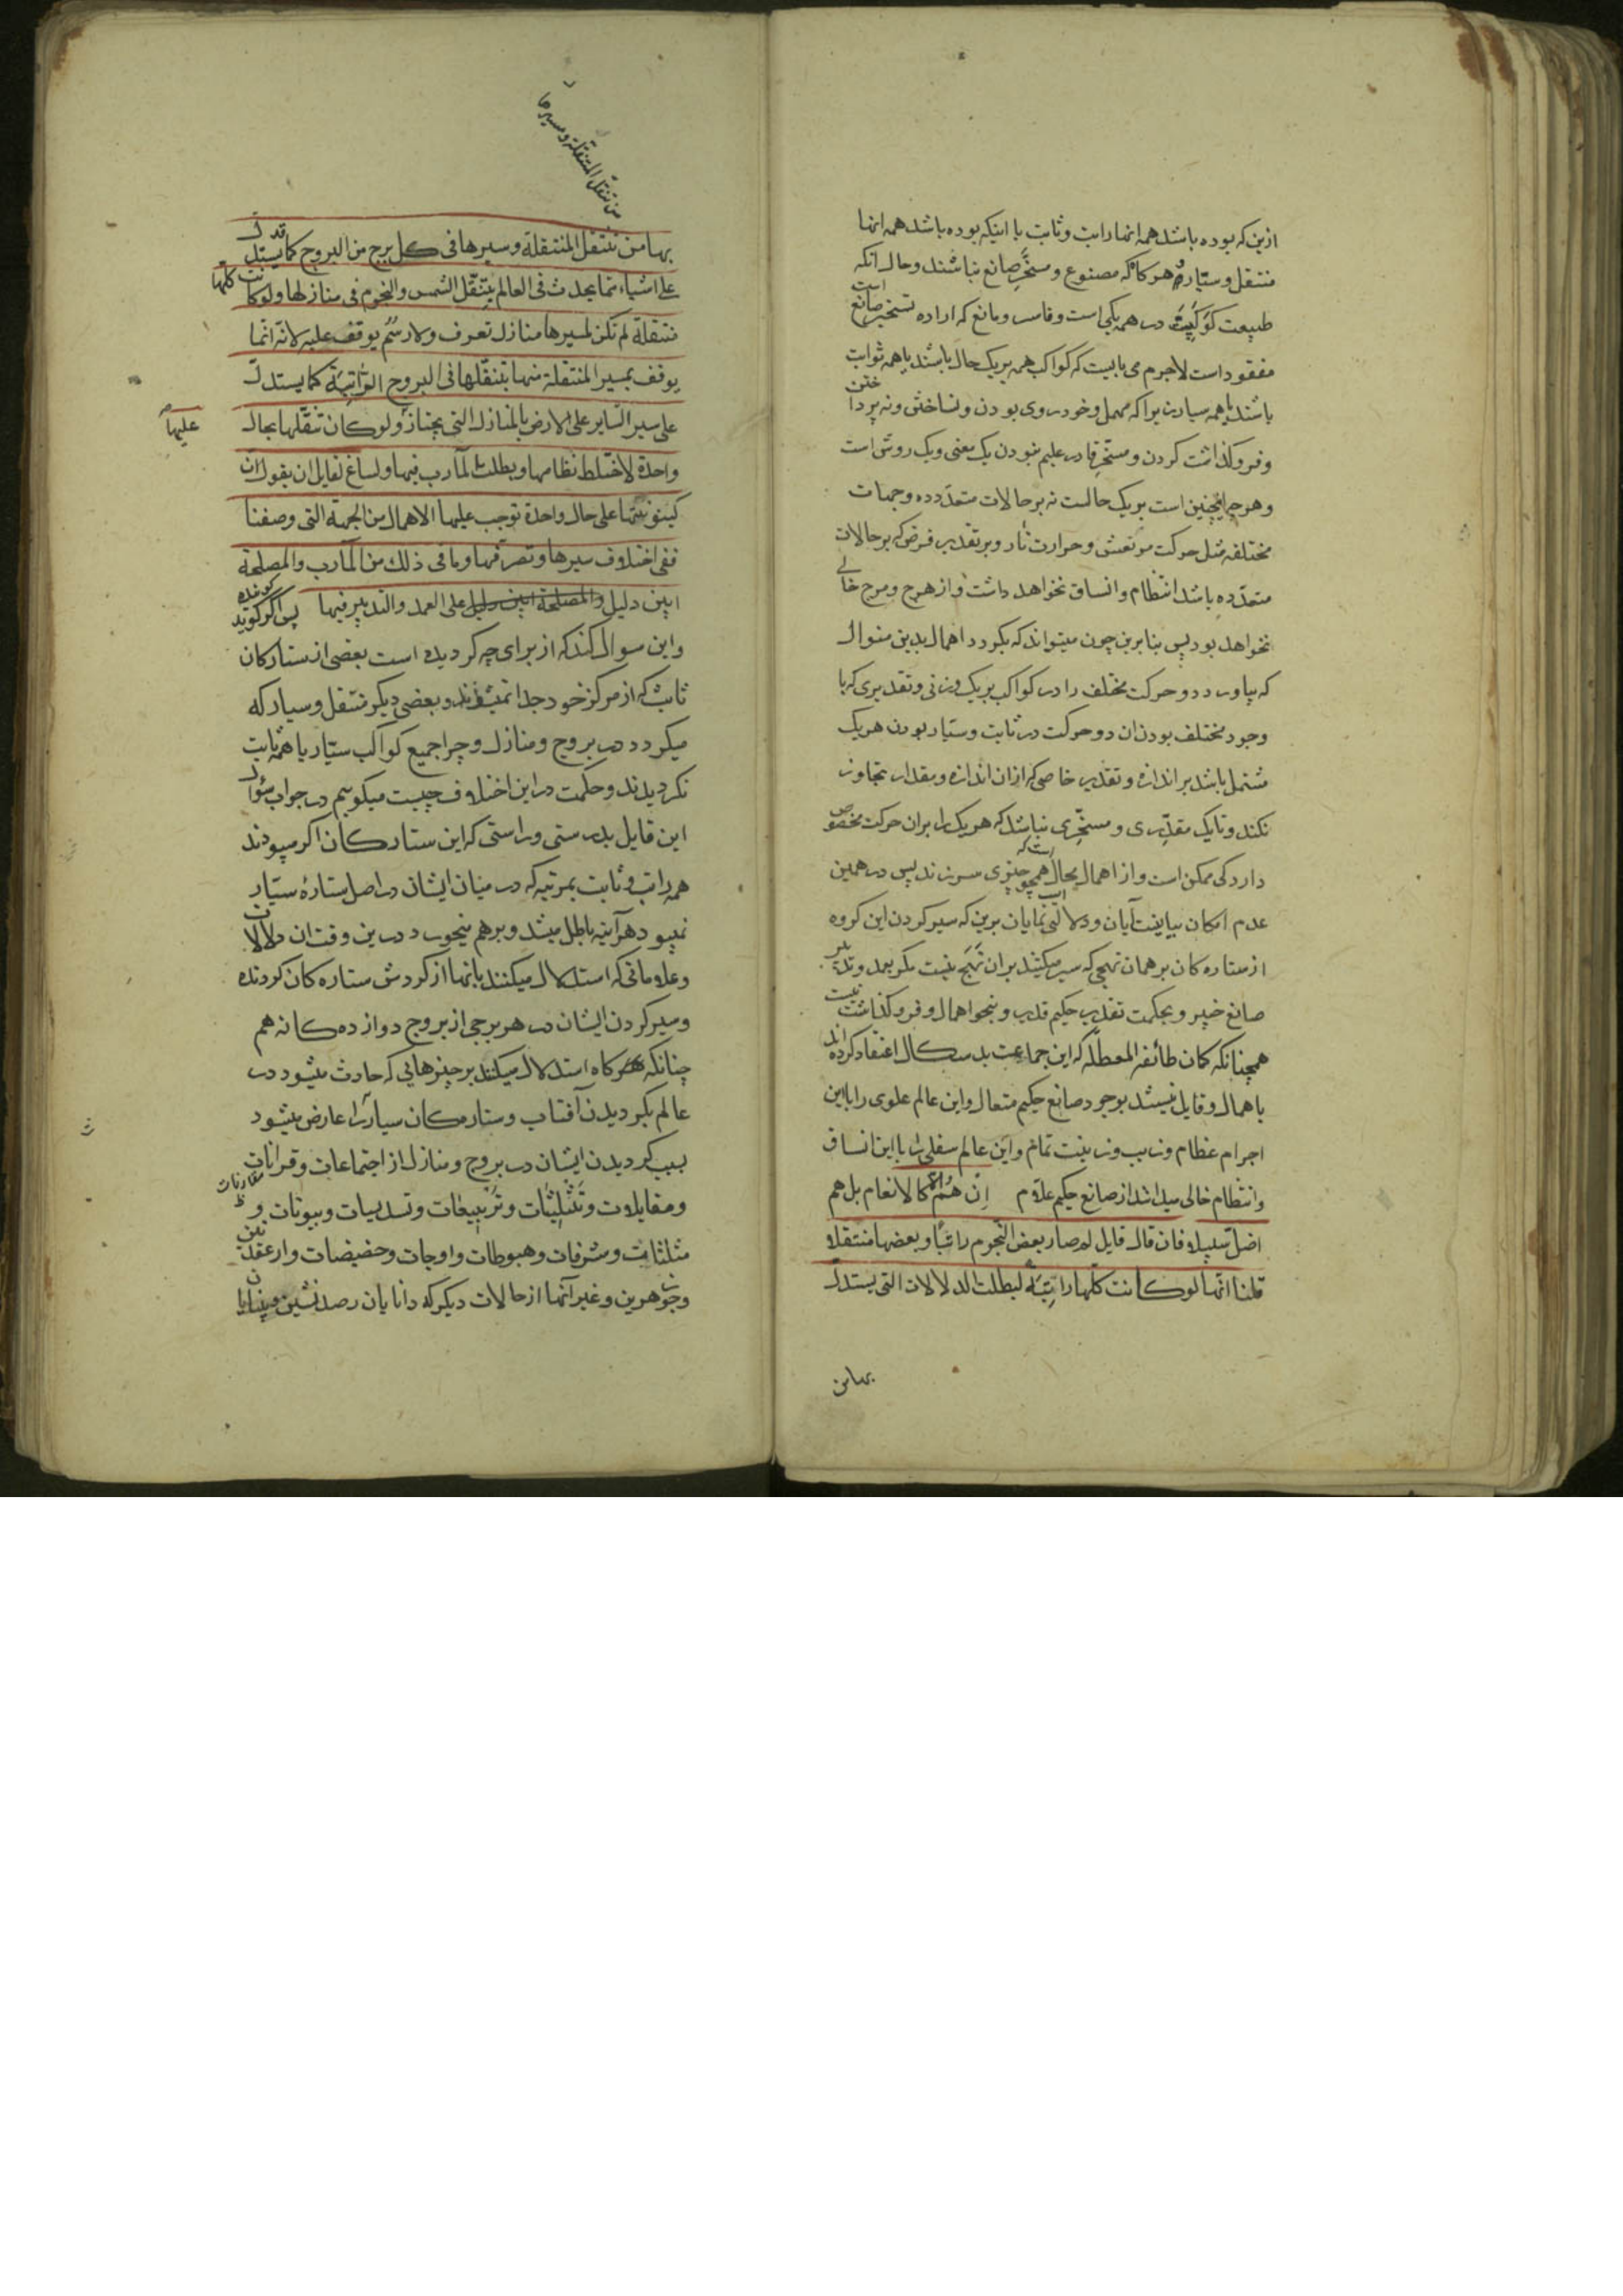 ازین که بوده باشد همه انها راتب و ثابت یا اینکه بوده باشد همه انها
منتقل و سیّاره هرگاه که مصنوع و مسخّر صانع نباشند و حال آنکه
طبیعت کوکبیّت در همه یکی است و قاسر و مانع که اراده تسخیر صانع است
مفقود است لاجرم می بایست که کواکب همه بر یک حال باشند یا همه ثوابت
باشند یا همه سیار زیرا که مهمل و خودروی بودن و نساختن و نه پرداختن
و فروگذاشت کردن و مسخّر قادر علیم نبودن یک معنی و یک روش است
و هرچه اینچنین است بر یک حالست نه بر حالات متعدّده و جهات
مختلفه مثل حرکت مرتعش و حرارت نار و بر تقدیر فرض که بر حالات
متعدّده باشد انتظام و اتساق نخواهد داشت و از هرج و مرج خالی
نخواهد بود پس بنا برین چون میتواند که بگردد اهمال بدین منوال
که بیاورد دو حرکت مختلف را در کواکب بر یک وزنی و تقدیری که با
وجود مختلف بودن ان دو حرکت در ثابت و سیّار بودن هر یک
مشتمل باشد بر اندازه و تقدیر خاصی که از ان اندازه و مقدار تجاوز
نکند و تا یک مقدّری و مسخّری نباشد که هر یک را بران حرکت مخصوص
دارد کی ممکن است و از اهمال محال است که همچو چیزی سر زند پس در همین
عدم امکان بیانیست آیان و دلالتی است نمایان برین که سیر کردن این گروه
از ستاره کان بر همان نهجی که سیر میکنند بران نهج نیست مگر بعمد و تدبیر
صانع خبیر و بحکمت تقدیر حکیم قدیر و بنحو اهمال و فروگذاشت نیست
همچنانکه گمان طائفه المعطّله که این جماعت بدسگال اعتقاد کرده اند
باهمال و قایل نیستند بوجود صانع حکیم متعال و این عالم علوی را با این
اجرام عظام و زیب و زینت تمام و این عالم سفلی را با این اتساق
و انتظام خالی میدانند از صانع حکیم علّام اِنْ هُمْ اِلّا کالانعام بل هم
اضل سبیلا فان قال قایل لم صار بعض النجوم راتبًا و بعضها منتقلا
قلنا انّها لو کانت کلّها راتبة لبطلت الدلالات التی یستدلّ
بها من
من تنقّل المتنقلة و مسیرها
بها من تنقل المنتقلة و سیرها فی کل برج من البروج کما قد یستدلّ
علی اشیاء مما یحدث فی العالم بتنقّل الشمس و النجوم فی منازلها و لو کانت کلّها
منتقلة لم تکن لمسیرها منازل تعرف و لا رسم یوقف علیه لانّه انّما
یوقف بمسیر المنتقلة منها بتنقّلها فی البروج الرّاتبة کما یستدلّ
علی سیر السّایر علی الارض بالمنازل التی یجتاز علیها و لو کان تنقّلها بحال
واحدة لاختلط نظامها و بطلت المآرب فیها و لساغ لقایل ان یقول انّ
کینونتها علی حال واحدة توجب علیها الاهمال من الجهة التی وصفنا
ففی اختلاف سیرها و تصرّفها و ما فی ذلک من المآرب و المصلحة
ابین دلیل والمصلحة ابین دلیل علی العمد و التدبیر فیها پس اگر گوید گوینده
و این سوال کند که از برای چه گردیده است بعضی از ستارکان
ثابت که از مرکز خود جدا نمیشوند و بعضی دیگر منتقل و سیار که
میگردد در بروج و منازل و چرا جمیع کواکب سیّار یا همه ثابت
نگردیدند و حکمت در این اختلاف چیست میگویم در جواب سؤال
این قایل بدرستی و راستی که این ستارکان اکر میبودند
همه راتب و ثابت بمرتبه که در میان ایشان در اصل ستارهٔ سیّار
نمیبود هرآینه باطل میشد و برهم میخورد درین وقت ان دلالات
و علاماتی که استدلال میکنند بانها از گردش ستاره کان گردنده
و سیر کردن ایشان در هر برجی از بروج دوازده گانه هم
چنانکه هرگاه استدلال میکنند بر چیزهائی که حادث میشود در
عالم بگردیدن آفتاب و ستارکان سیار را عارض میشود
بسبب گردیدن ایشان در بروج و منازل از اجتماعات و قرانات
مقارنات
و مقابلات و تثلیثات و تربیعات و تسدیسات و بیوتات و
مثلثات و شرفات و هبوطات و اوجات و حضیضات و از عقدتین
و جوزهرین و غیر آنها از حالات دیگر که دانایان رصد نشین و بینایان